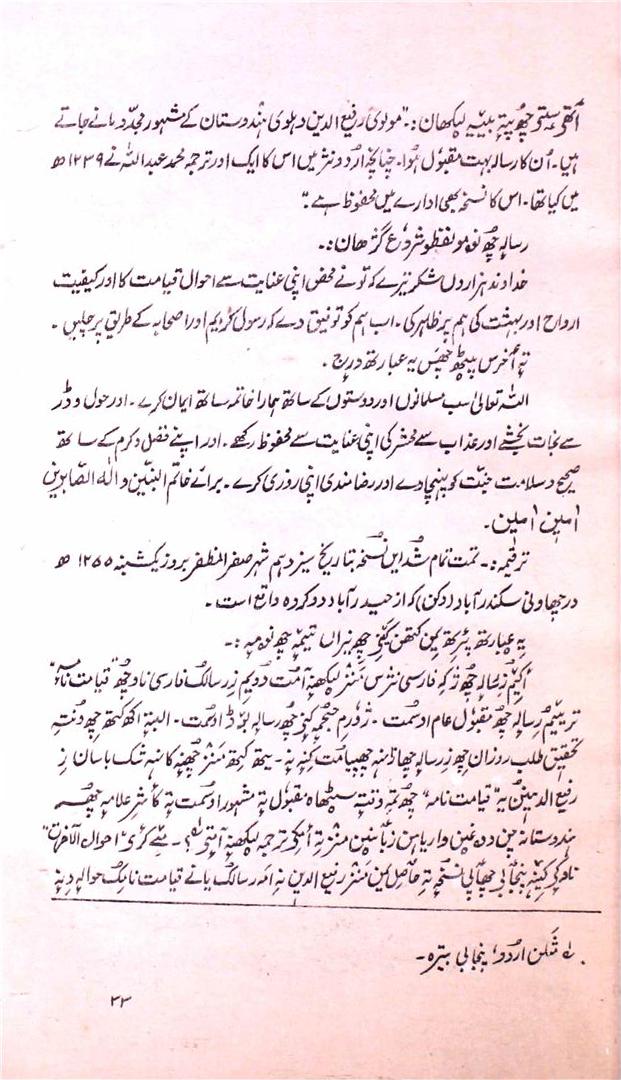 اَتھۍ سیتی چھُ پتہٕ بییہِ لیکھان:۔ "مولوی رفیع الدین دہلوی ہندوستان کے مشہور مجدّد مانے جاتے
ہیں۔ اُن کا رسالہ بہت مقبول ہُوا۔ چنانچہ اردو نثر میں اس کا ایک اور ترجمہ محمد عبداللہ نے ۱۲۳۹ھ
میں کیا تھا۔ اس کا نسخہ بھی ادارے میں محفوظ ہے۔"
رسالہٕ چھُ نوٚو لفظو شروع گژھان:۔
خداوند ہزاروں شکر تیرے کہ تو نے محض اپنی عنایت سے احوال قیامت کا اور کیفیت
ارواح اور بہشت کی ہم پر ظاہر کی۔ اب ہم کو توفیق دے کہ رسول کریم اور اصحابہ کے طریق پر چلیں۔
تہٕ آخرس پیٹھ چھس یہ عبارتھ درج۔
اللہ تعالیٰ سب مسلمانوں اور دوستوں کے ساتھ ہمارا خاتمہ ساتھ ایمان کرے۔ اور حول و ڈر
سے نجات بخشے اور عذاب سے محشر کی اپنی عنایت سے محفوظ رکھے۔ اور اپنے فضل و کرم کے ساتھ
صحیح و سلامت جنّت کو پہنچا دے اور رضامندی اپنی روزی کرے۔ برائے خاتم النبیّن و الٰہ الصّابرین
اٰمین اٰمین۔
ترقیمہ:۔ تمت تمام شد این نسخہ بتاریخ سیزدہم شہر صفر المظفر بروز یکشنبہ ۱۲۵۵ھ
در چھاونی سکندر آباد (دکن) کہ از حیدر آباد دو کردہ واقع است۔
یہِ عبارتھ پٔرتھ یمن کتھن کُنی چھِ نیران تمہٕ چھِ نوہ یہ:۔
اَکھ رسالہٕ چھُ زِ کہ فارسی نثرس منز لیکھنہٕ آمت دویم زِ رسالک فارسی ناو چھُ "قیامت نامہ"
تریٚیم رسالہٕ چھُ مقبول عام اوسمت۔ ژورم حجمہٕ کنی چھُ رسالہٕ بوڈ اوسمت۔ البتہٕ اکھ کتھ چھِ وُنتہِ
تحقیق طلب روزان چھِ زِ رسالہٕ چھا ژنہٕ چھپیامت کِنہٕ نہٕ۔ یتھ کتھ منز چھُنہٕ کانہہ شک باسان زِ
رفیع الدین یہ "قیامت نامہ" چھُ تمہٕ وقتہٕ سیٹھاہ مقبول تہٕ مشہور اوسمت تہٕ کاشرِ علاوہ چھُ
ہندوستانہٕ چین دون وارین زبانین منز تہِ اَمیک ترجمہ لیکھنہٕ آمتی؟۔ مے کری "احوال الآخرت"
ناوٕکی کینہہ پنجابی چھاپی نسخہٕ تہِ حاصل یمن منز رفیع الدین نہِ اَمہ رسالک یانے قیامت نامک حوالہٕ دِنہٕ
لہ شَلَن اردو، پنجابی بیترہ۔
۳۳